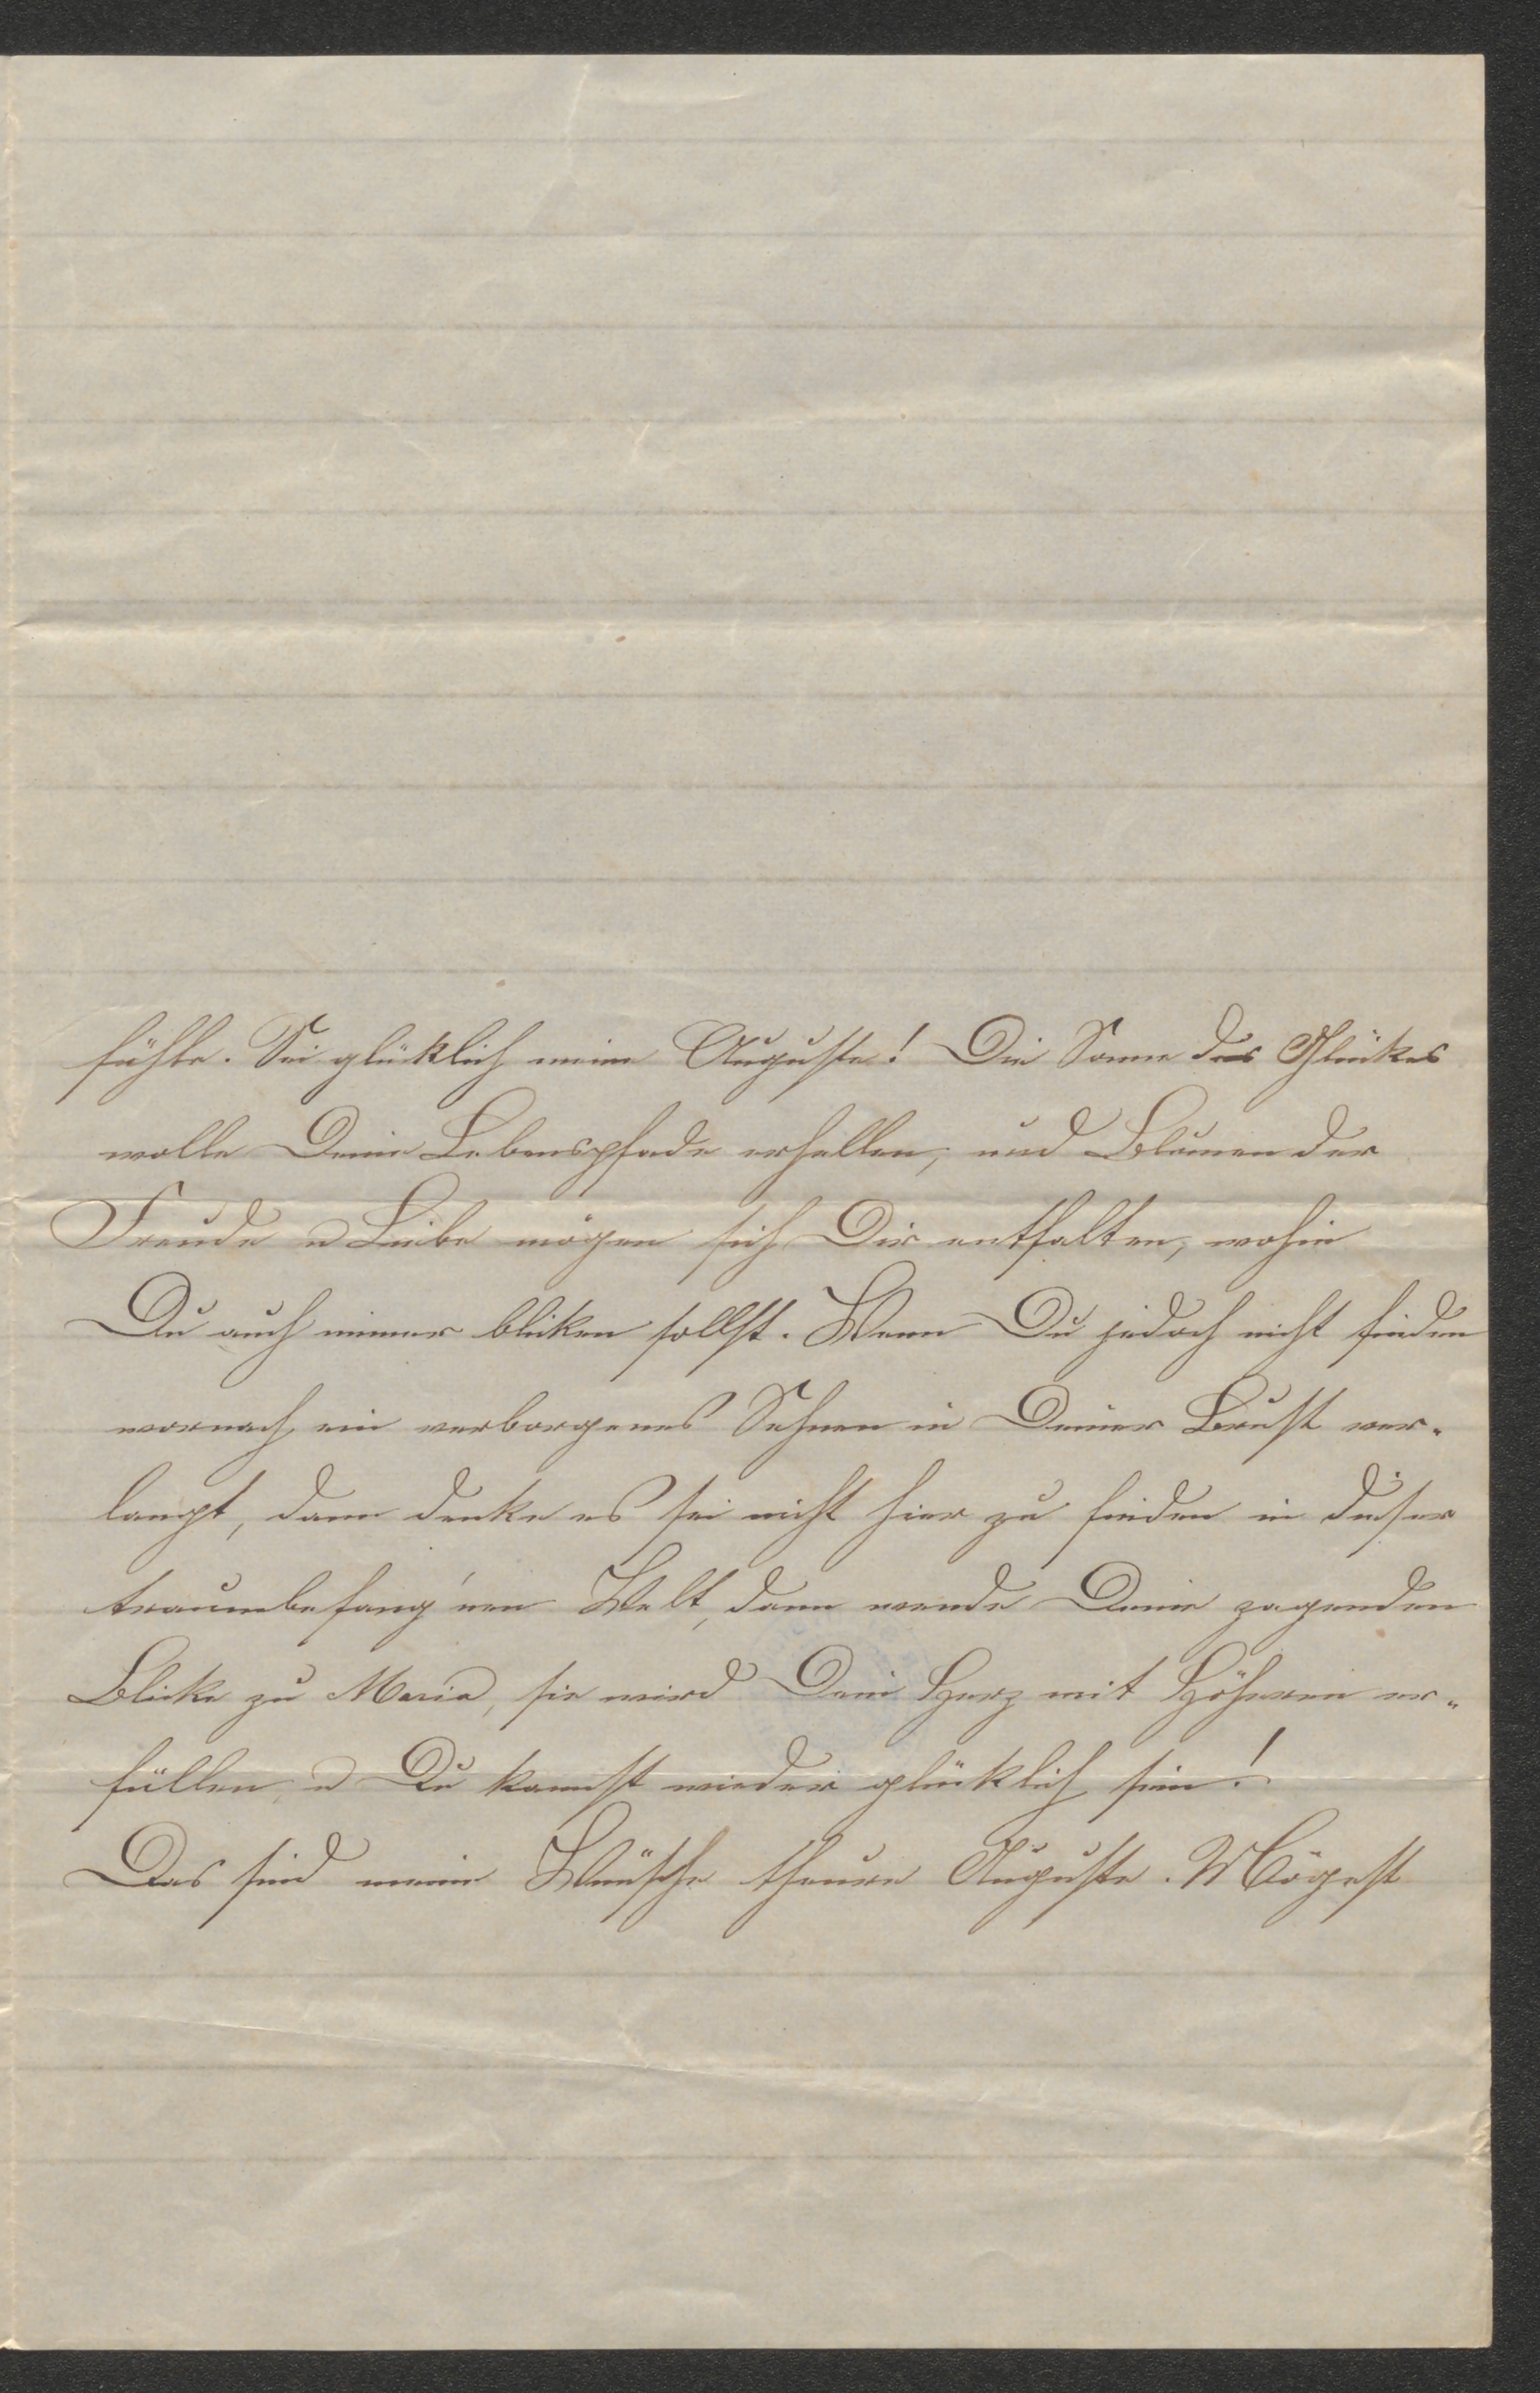 fühle. Sei glüklich meine Auguste! Die Sonne des Glükes
wolle Deine Lebenspfade erhellen, und Blumen der
Freude u Liebe mögen sich Dir entfalten, wohin
Du auch immer bliken sollst. Wenn Du jedoch nicht finden
wornach ein verborgenes Sehnen in Deiner Brust ver-
langt, dann denke es sei nicht hier zu finden in dieser
traumbefang'nen Welt, dann wende Deine zagenden
Blicke zu Maria, sie wird Dein Herz mit Höheren er-
füllen, u Du kannst wieder glüklich sein!
Das sind meine Wünsche theure Auguste. Mögest